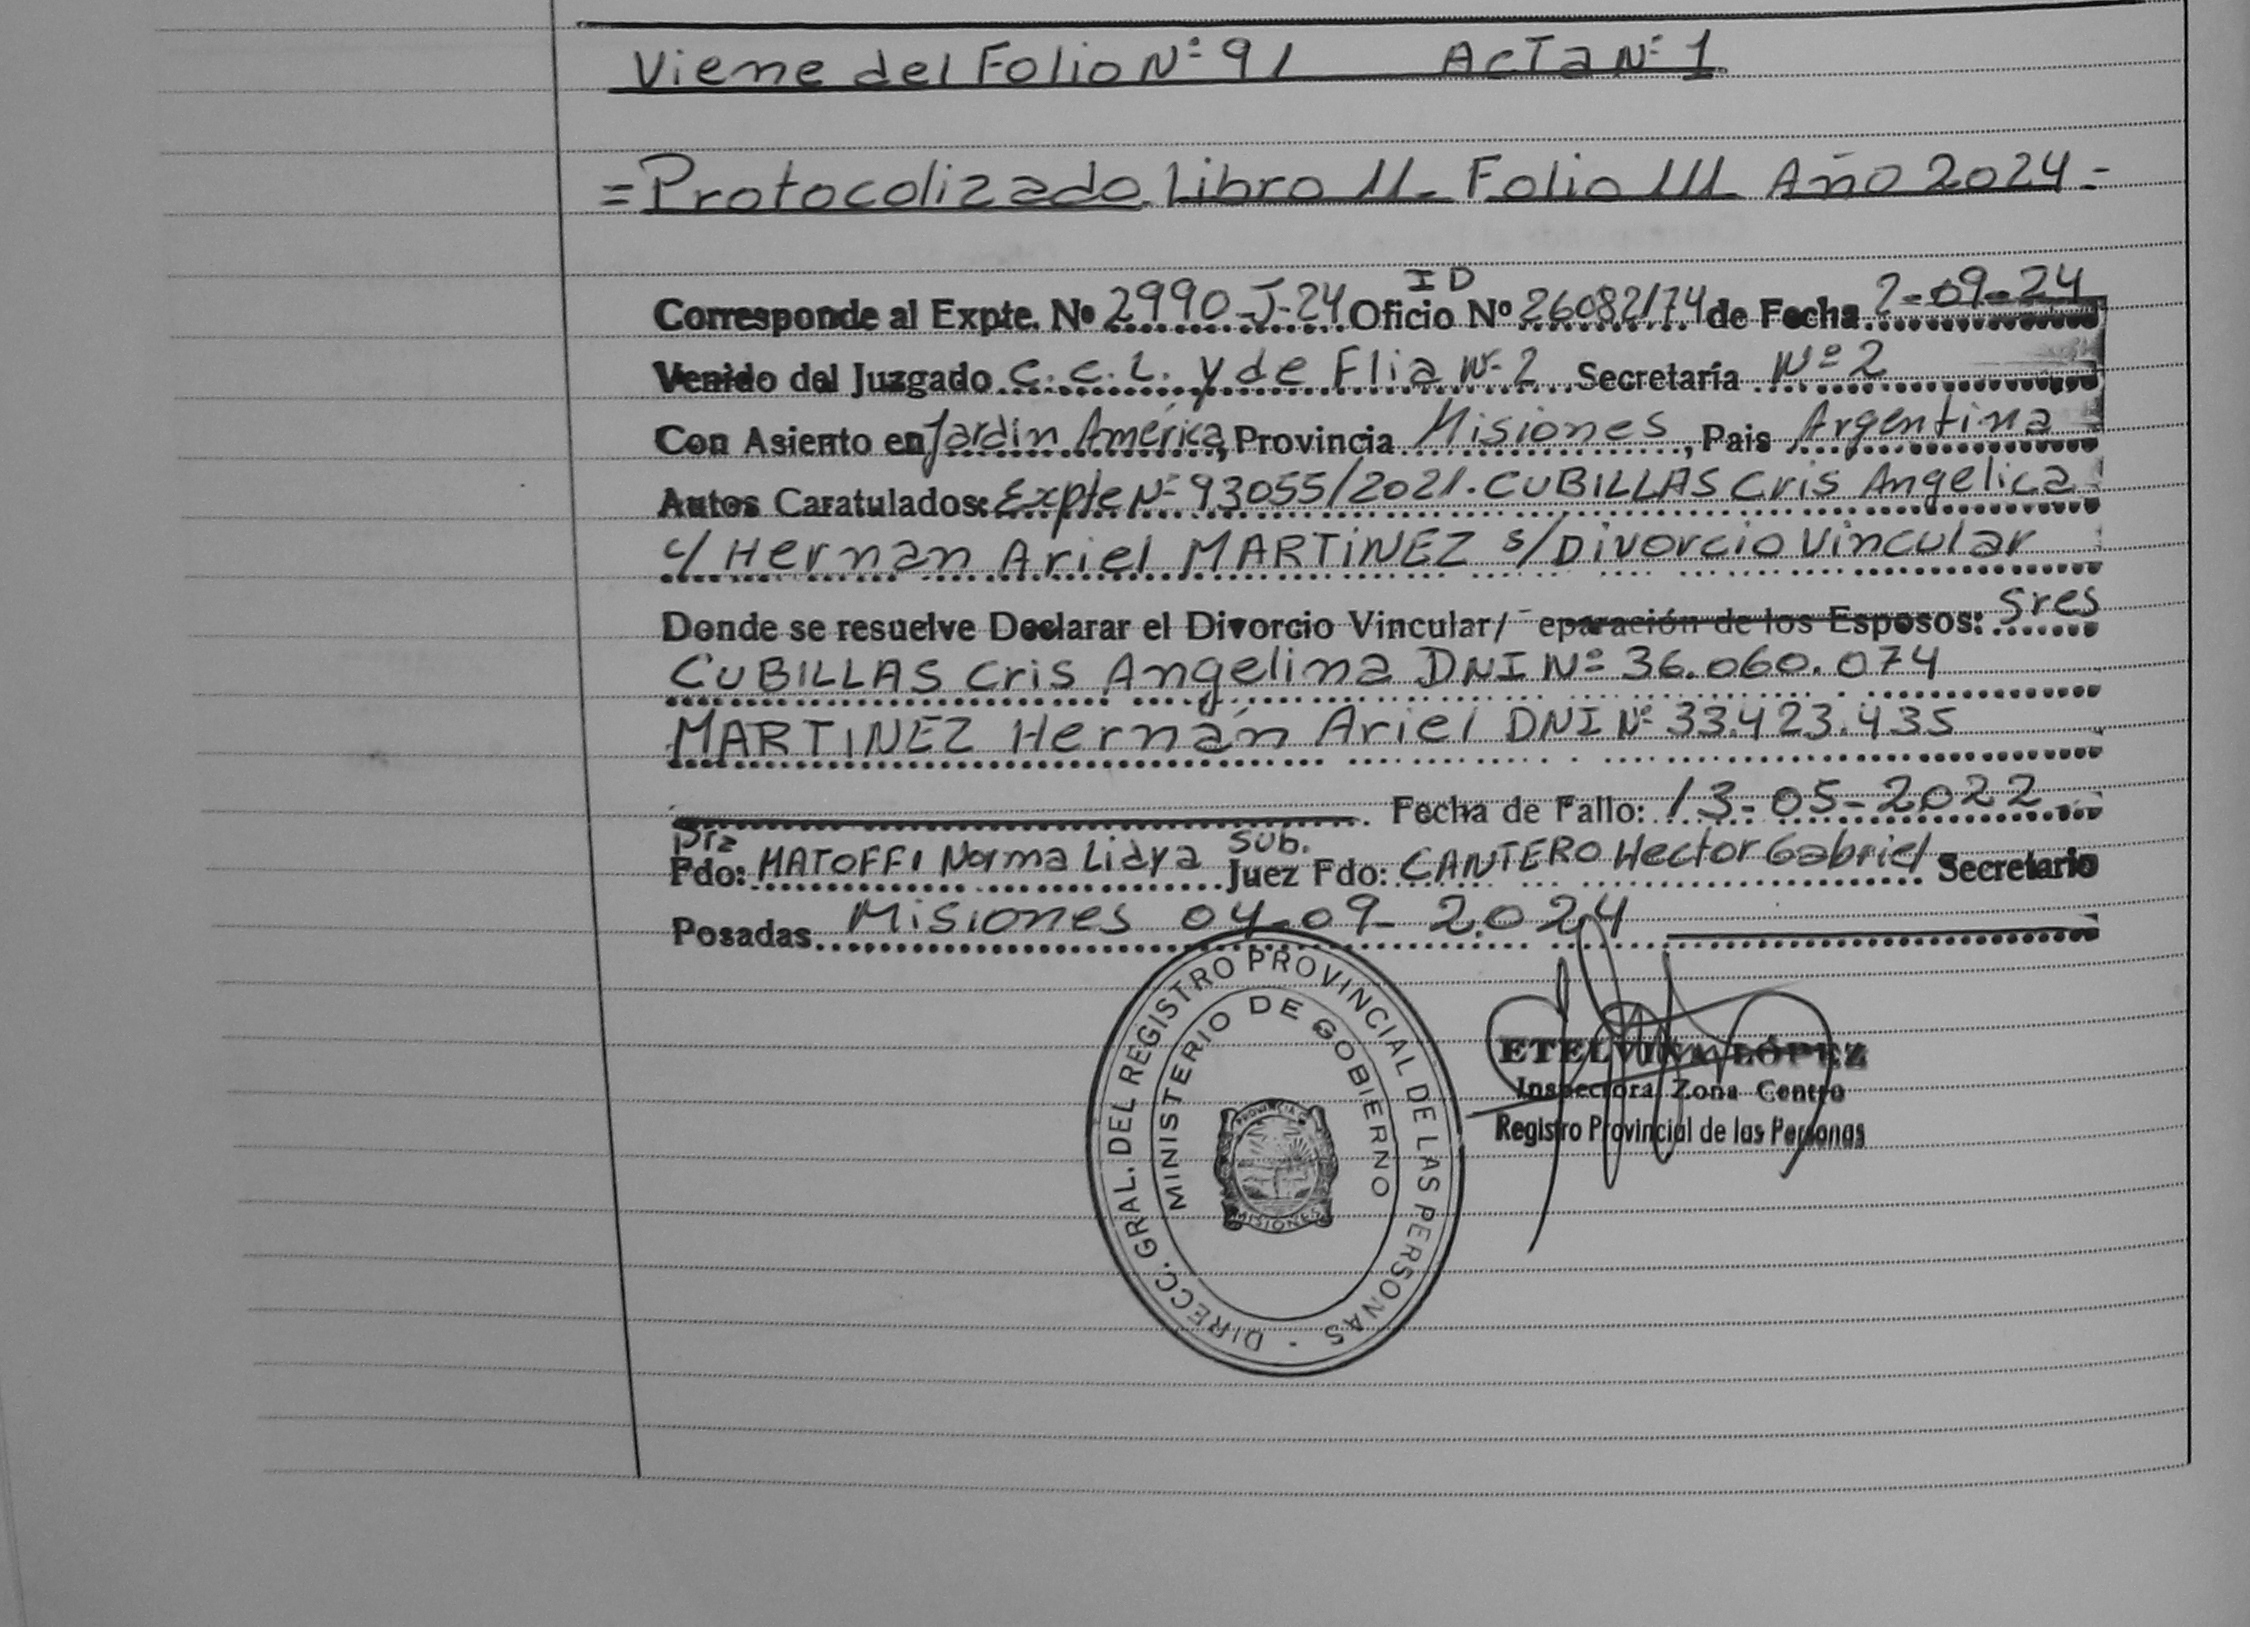 Viene del Folio Nº 91 Acta Nº 1
=Protocolizado Libro 11- Folio 111- Año 2024-
ID
Corresponde al Expte. Nº 2990-J-24 Oficio Nº 26082174 de Fecha 2-09-24
Venido del Juzgado C.C.L. y de Flia Nº 2 Secretaría Nº 2
Con Asiento en Jardín América, Provincia Misiones, Pais Argentina
Autos Caratulados: Expte Nº 93055/2021. CUBILLAS Cris Angelica
c/ Hernan Ariel MARTINEZ s/ Divorcio Vincular
Donde se resuelve Declarar el Divorcio Vincular/ eparación de los Esposos: Sres
CUBILLAS Cris Angelina DNI Nº 36.060.074
MARTINEZ Hernán Ariel DNI Nº 33.423.435
Fecha de Fallo: 13-05-2022
Dra Sub.
Fdo: MATOFFI Norma Lidya Juez Fdo: CANTERO Hector Gabriel Secretario
Posadas Misiones 04-09-2024
DIRECC. GRAL. DEL REGISTRO PROVINCIAL DE LAS PERSONAS -
MINISTERIO DE GOBIERNO
PROVINCIA
MISIONES
ETELVINA LÓPEZ
Inspectora Zona Centro
Registro Provincial de las Personas